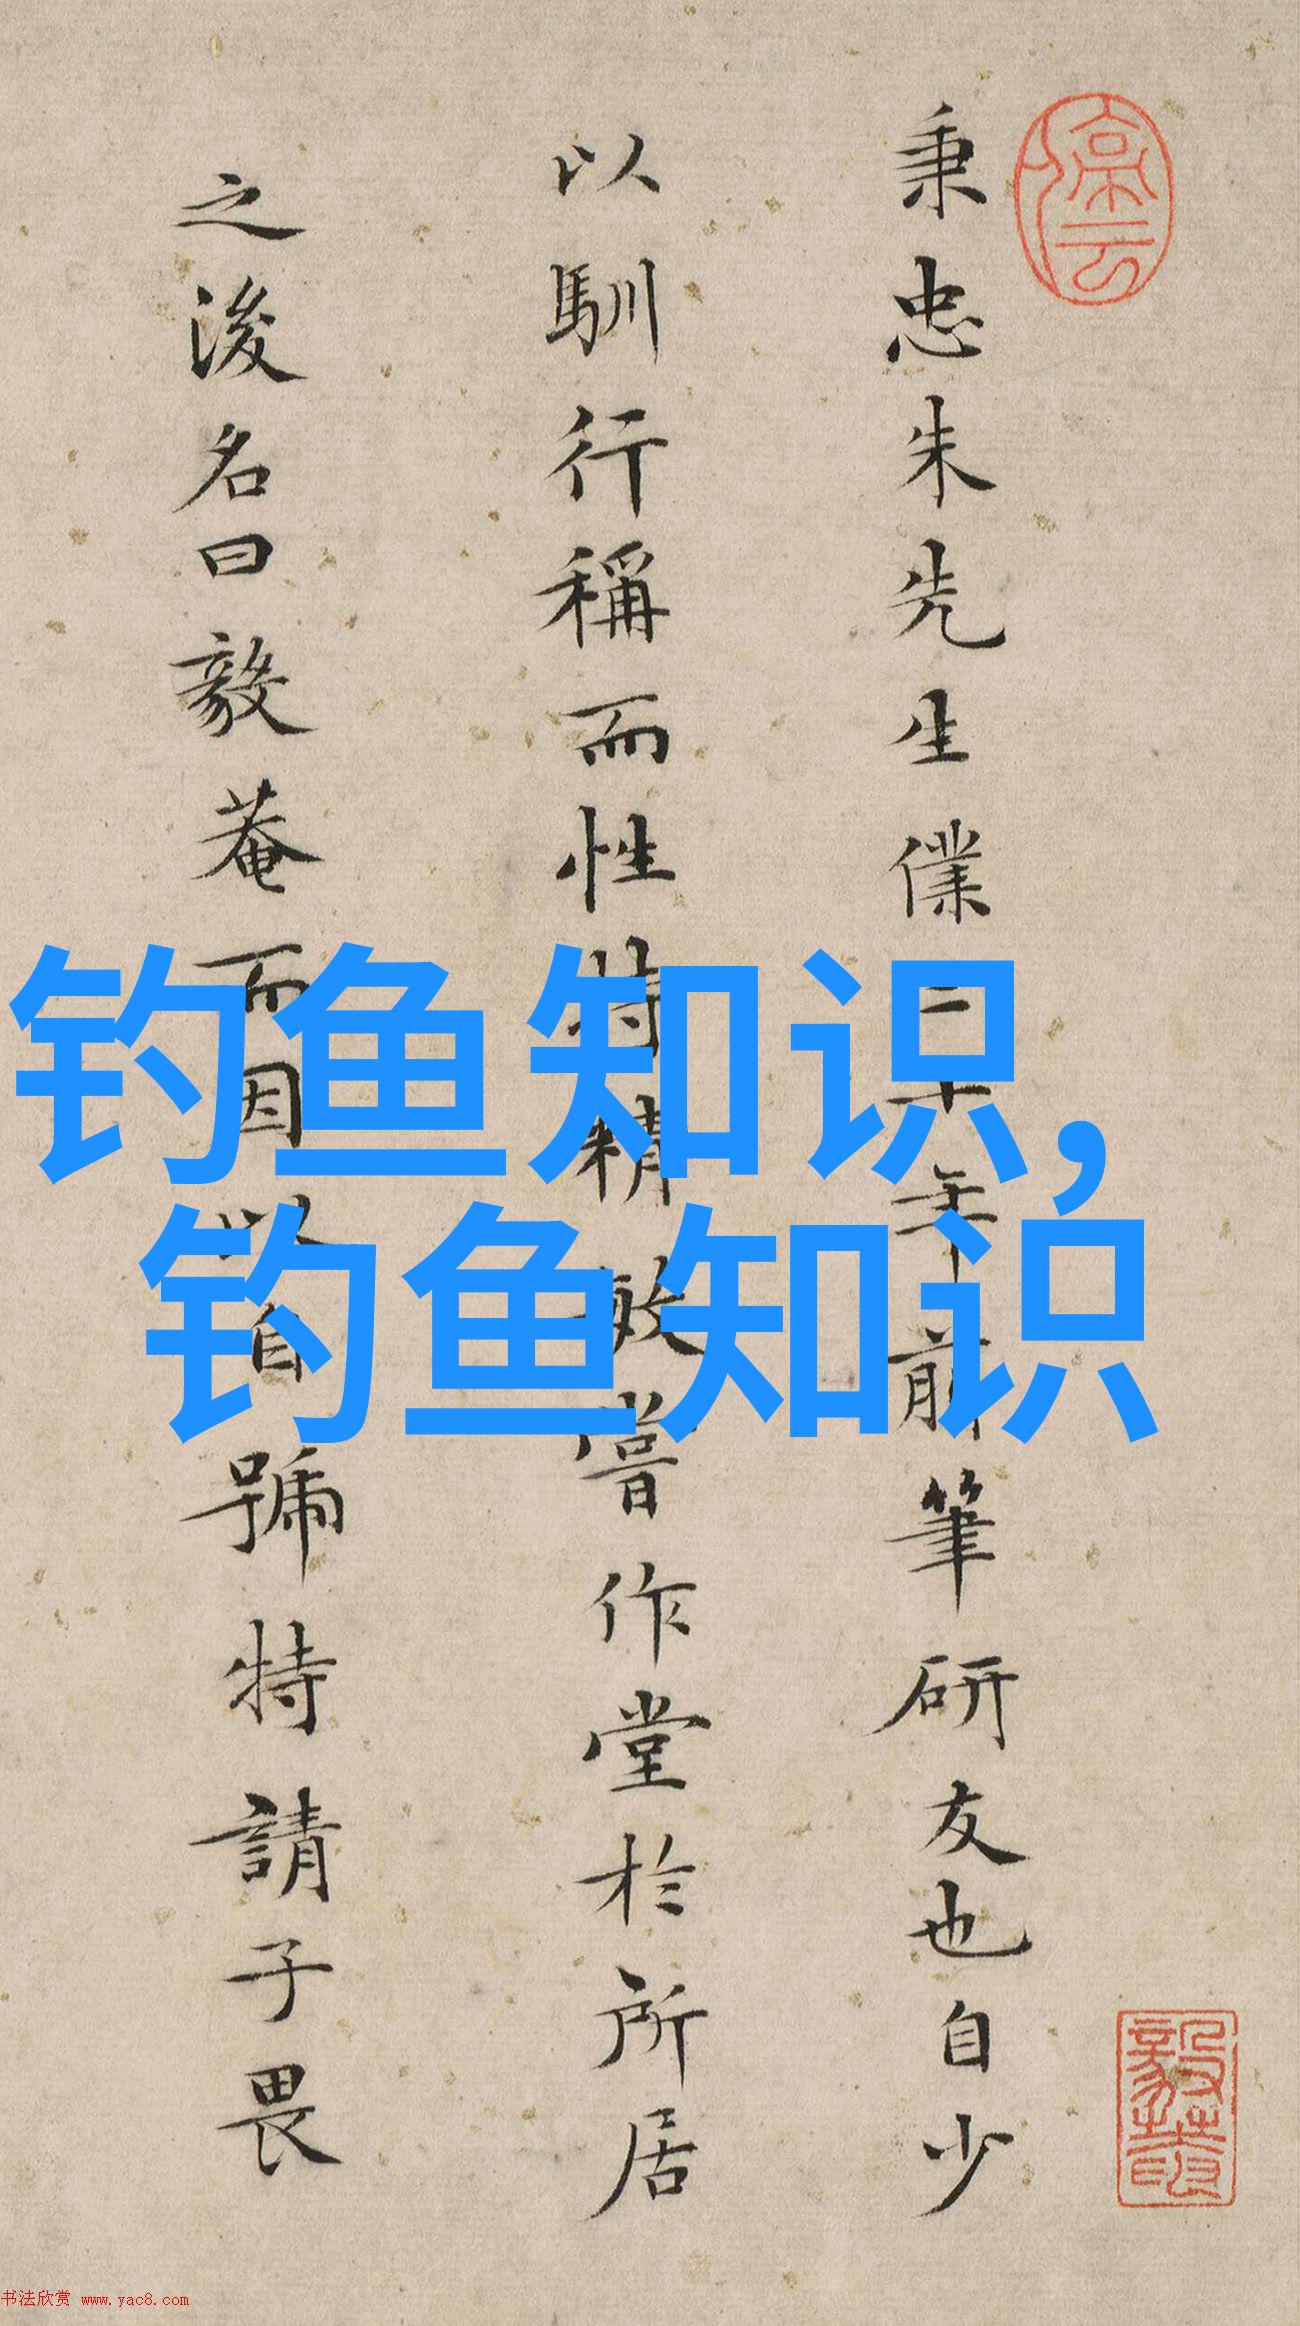 秉忠朱先生僕三十年前筆研友也自少
以馴行稱而性特精敏嘗作堂於所居
之後名曰毅菴而因以自號特請子畏
钓鱼知识,
钓鱼知识
书法欣赏 www.yac8.com